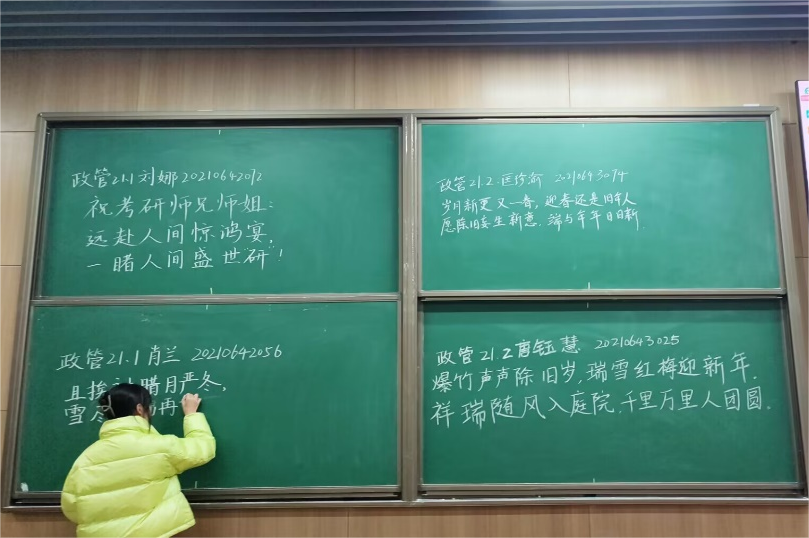 政管21.1 刘娜 20210642012
祝考研师兄师姐:
远赴人间惊鸿宴,
一睹人间盛世研!
政管21.2 匡珍渝 20210643074
岁月新更又一春,迎春还是旧年人
愿除旧妄生新意,端与年年日日新.
政管21.1 肖兰 20210642056
且挨过腊月严冬,
雪尽 再
政管21.2 唐钰慧 20210643025
爆竹声声除旧岁,瑞雪红梅迎新年.
祥瑞随风入庭院.千里万里人团圆.